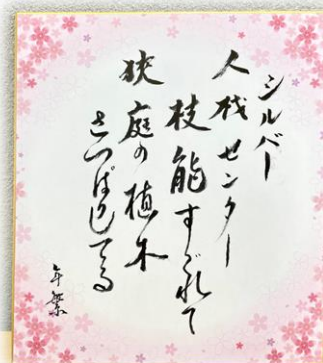 シルバー
人材センター
枝能すぐれて
狭庭の植木
さっぱりしてる
年繁